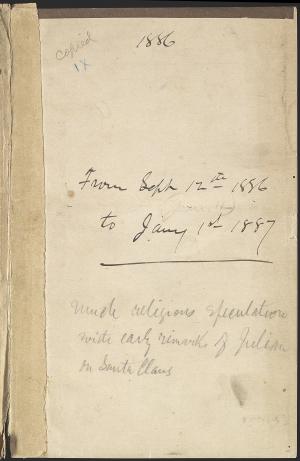 copied
1886
IX
From Sept 12th 1886
to Jany 1st 1887
much religious speculation
with early remarks of Julian
on Santa Claus